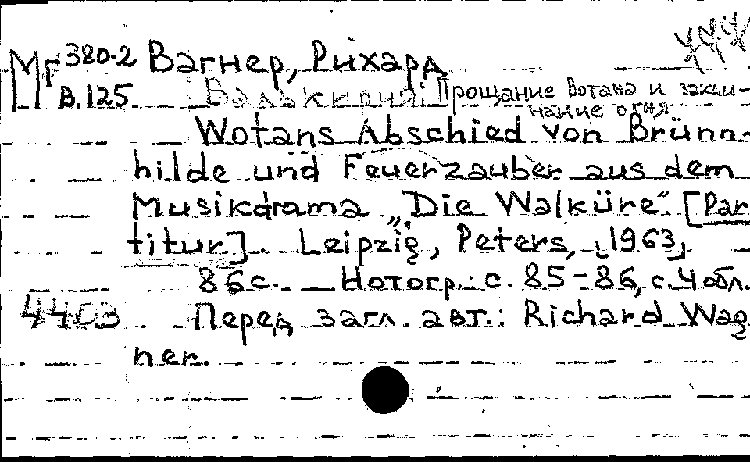 Мг 380-2 Вагнер, Рихард
В.125 Валькирия. Прощание Вотана и закли-
нание огня
Wotans Abschied von Brünn-
hilde und Feuerzauber aus dem
Musikdrama „Die Walküre“. [Par
titur]. Leipzig, Peters, [1963].
86 с. Нотогр.: с. 85-86, с. 4 обл.
4403 Перед загл. авт.: Richard Wag
ner.